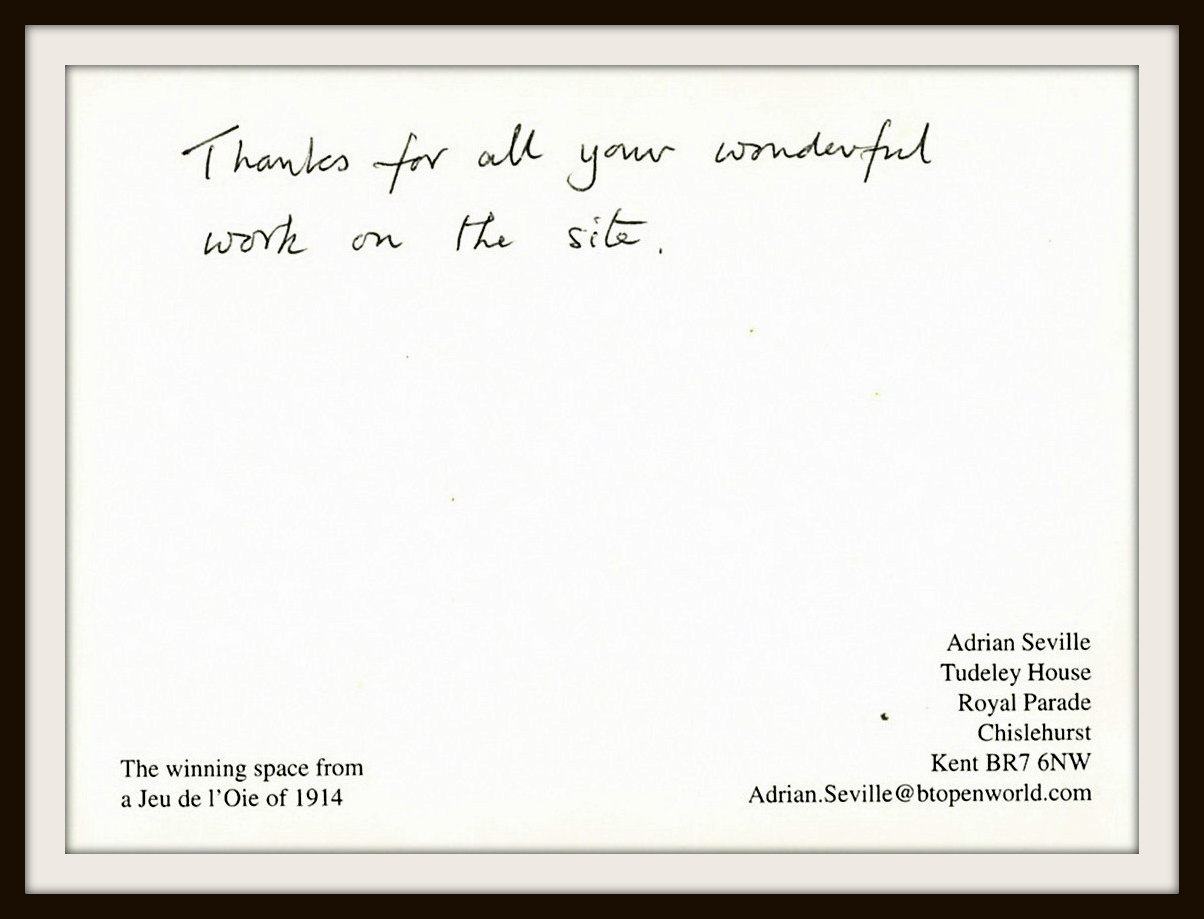 Thanks for all your wonderful
work on the site.
The winning space from
a Jeu de l'Oie of 1914
Adrian Seville
Tudeley House
Royal Parade
Chislehurst
Kent BR7 6NW
Adrian.Seville@btopenworld.com